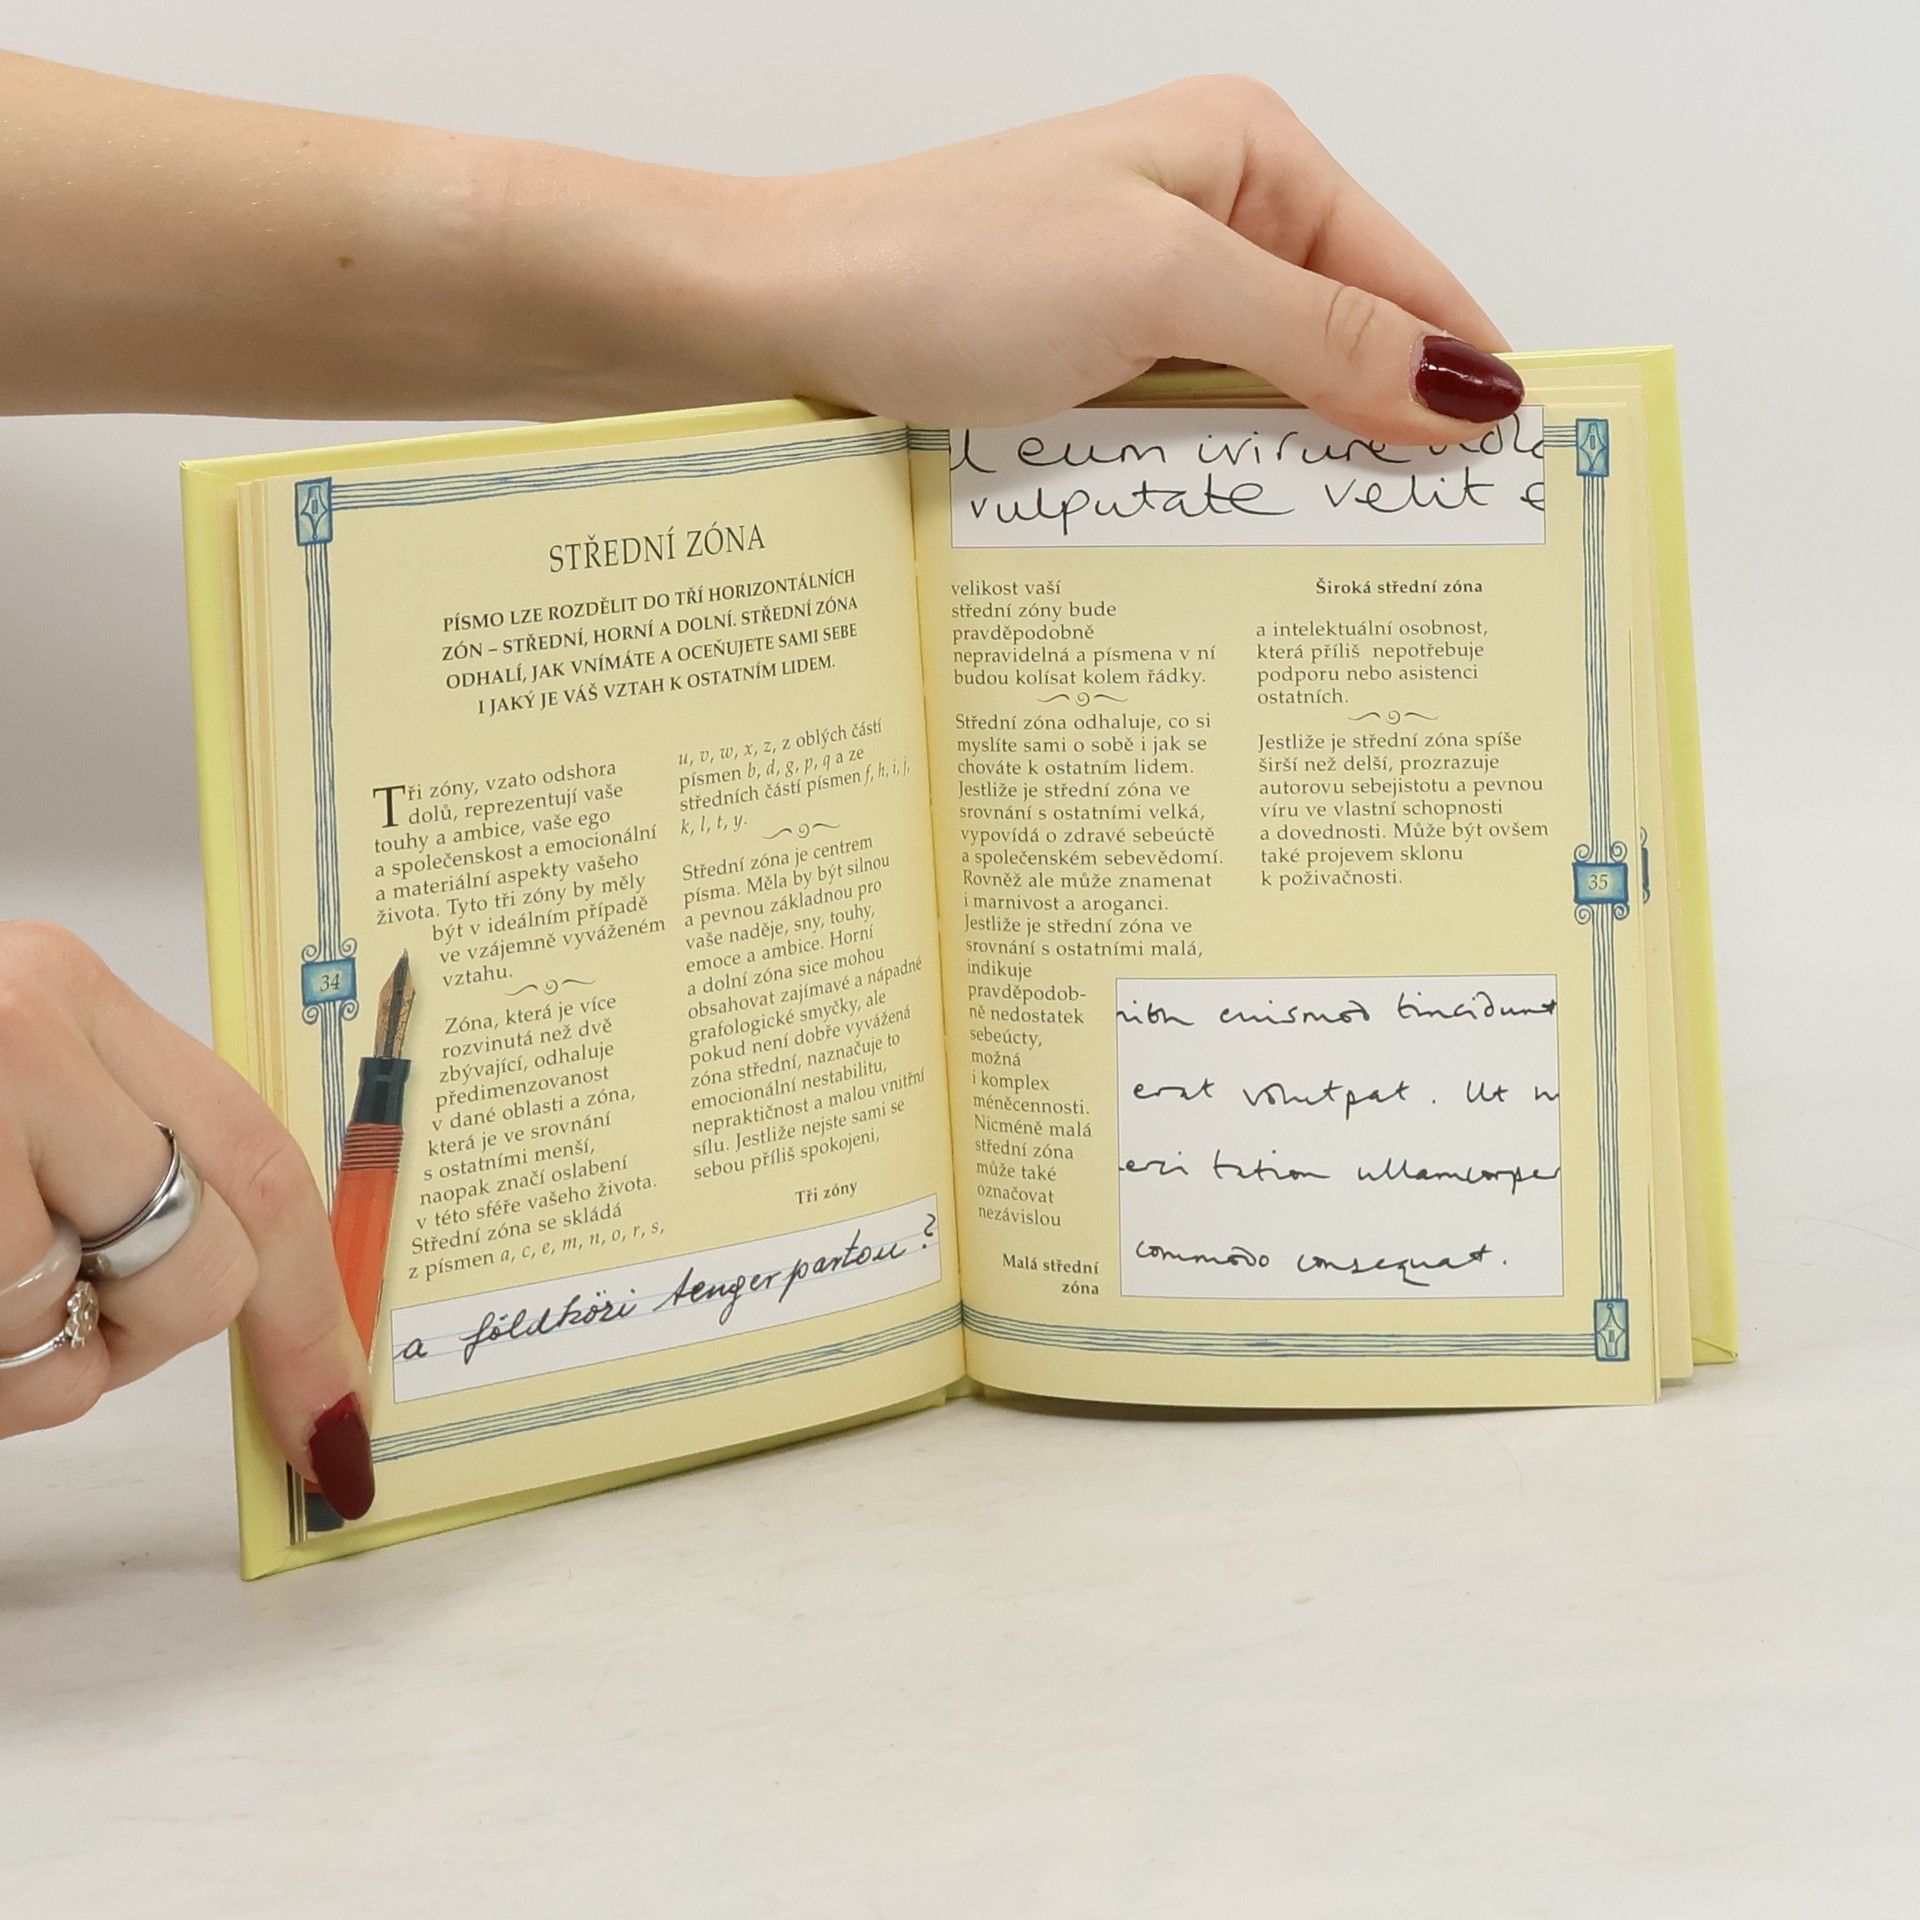 STŘEDNÍ ZÓNA
PÍSMO LZE ROZDĚLIT DO TŘÍ HORIZONTÁLNÍCH
ZÓN – STŘEDNÍ, HORNÍ A DOLNÍ. STŘEDNÍ ZÓNA
ODHALÍ, JAK VNÍMÁTE A OCEŇUJETE SAMI SEBE
I JAKÝ JE VÁŠ VZTAH K OSTATNÍM LIDEM.
Tři zóny, vzato odshora
dolů, reprezentují vaše
touhy a ambice, vaše ego
a společenskost a emocionální
a materiální aspekty vašeho
života. Tyto tři zóny by měly
být v ideálním případě
ve vzájemně vyváženém
vztahu.
Zóna, která je více
rozvinutá než dvě
zbývající, odhaluje
předimenzovanost
v dané oblasti a zóna,
která je ve srovnání
s ostatními menší,
naopak značí oslabení
v této sféře vašeho života.
Střední zóna se skládá
z písmen a, c, e, m, n, o, r, s,
u, v, w, x, z, z oblých částí
písmen b, d, g, p, q a ze
středních částí písmen f, h, i, j,
k, l, t, y.
Střední zóna je centrem
písma. Měla by být silnou
a pevnou základnou pro
vaše naděje, sny, touhy,
emoce a ambice. Horní
a dolní zóna sice mohou
obsahovat zajímavé a nápadné
grafologické smyčky, ale
pokud není dobře vyvážená
zóna střední, naznačuje to
emocionální nestabilitu,
nepraktičnost a malou vnitřní
sílu. Jestliže nejste sami se
sebou příliš spokojeni,
Tři zóny
a földközi tengerparton?
34
eum
vulputate velit e
velikost vaší
střední zóny bude
pravděpodobně
nepravidelná a písmena v ní
budou kolísat kolem řádky.
Střední zóna odhaluje, co si
myslíte sami o sobě i jak se
chováte k ostatním lidem.
Jestliže je střední zóna ve
srovnání s ostatními velká,
vypovídá o zdravé sebeúctě
a společenském sebevědomí.
Rovněž ale může znamenat
i marnivost a aroganci.
Jestliže je střední zóna ve
srovnání s ostatními malá,
indikuje
pravděpodob-
ně nedostatek
sebeúcty,
možná
i komplex
méněcennosti.
Nicméně malá
střední zóna
může také
označovat
nezávislou
Malá střední
zóna
Široká střední zóna
a intelektuální osobnost,
která příliš nepotřebuje
podporu nebo asistenci
ostatních.
Jestliže je střední zóna spíše
širší než delší, prozrazuje
autorovu sebejistotu a pevnou
víru ve vlastní schopnosti
a dovednosti. Může být ovšem
také projevem sklonu
k poživačnosti.
euismod tincidunt
erat volutpat. Ut
tation ullamcorper
commodo consequat.
35